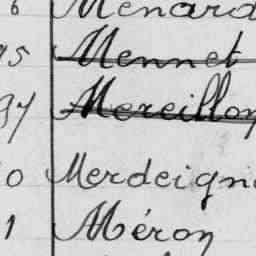 6 Menard
95 Mennet
97 Mereillon
0 Merdeign
1 Méron